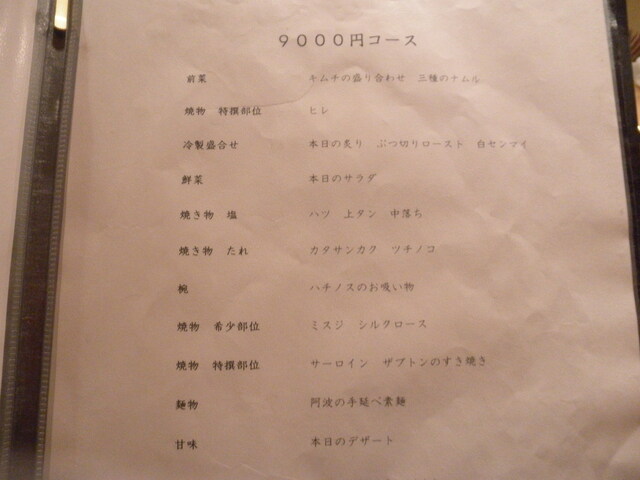 9000円コース
前菜 キムチの盛り合わせ 三種のナムル
焼物 特撰部位 ヒレ
冷製盛合せ 本日の炙り ぶつ切りロースト 白センマイ
鮮菜 本日のサラダ
焼き物 塩 ハツ 上タン 中落ち
焼き物 たれ カタサンカク ツチノコ
椀 ハチノスのお吸い物
焼物 希少部位 ミスジ シルクロース
焼物 特撰部位 サーロイン ザブトンのすき焼き
麺物 阿波の手延べ素麺
甘味 本日のデザート